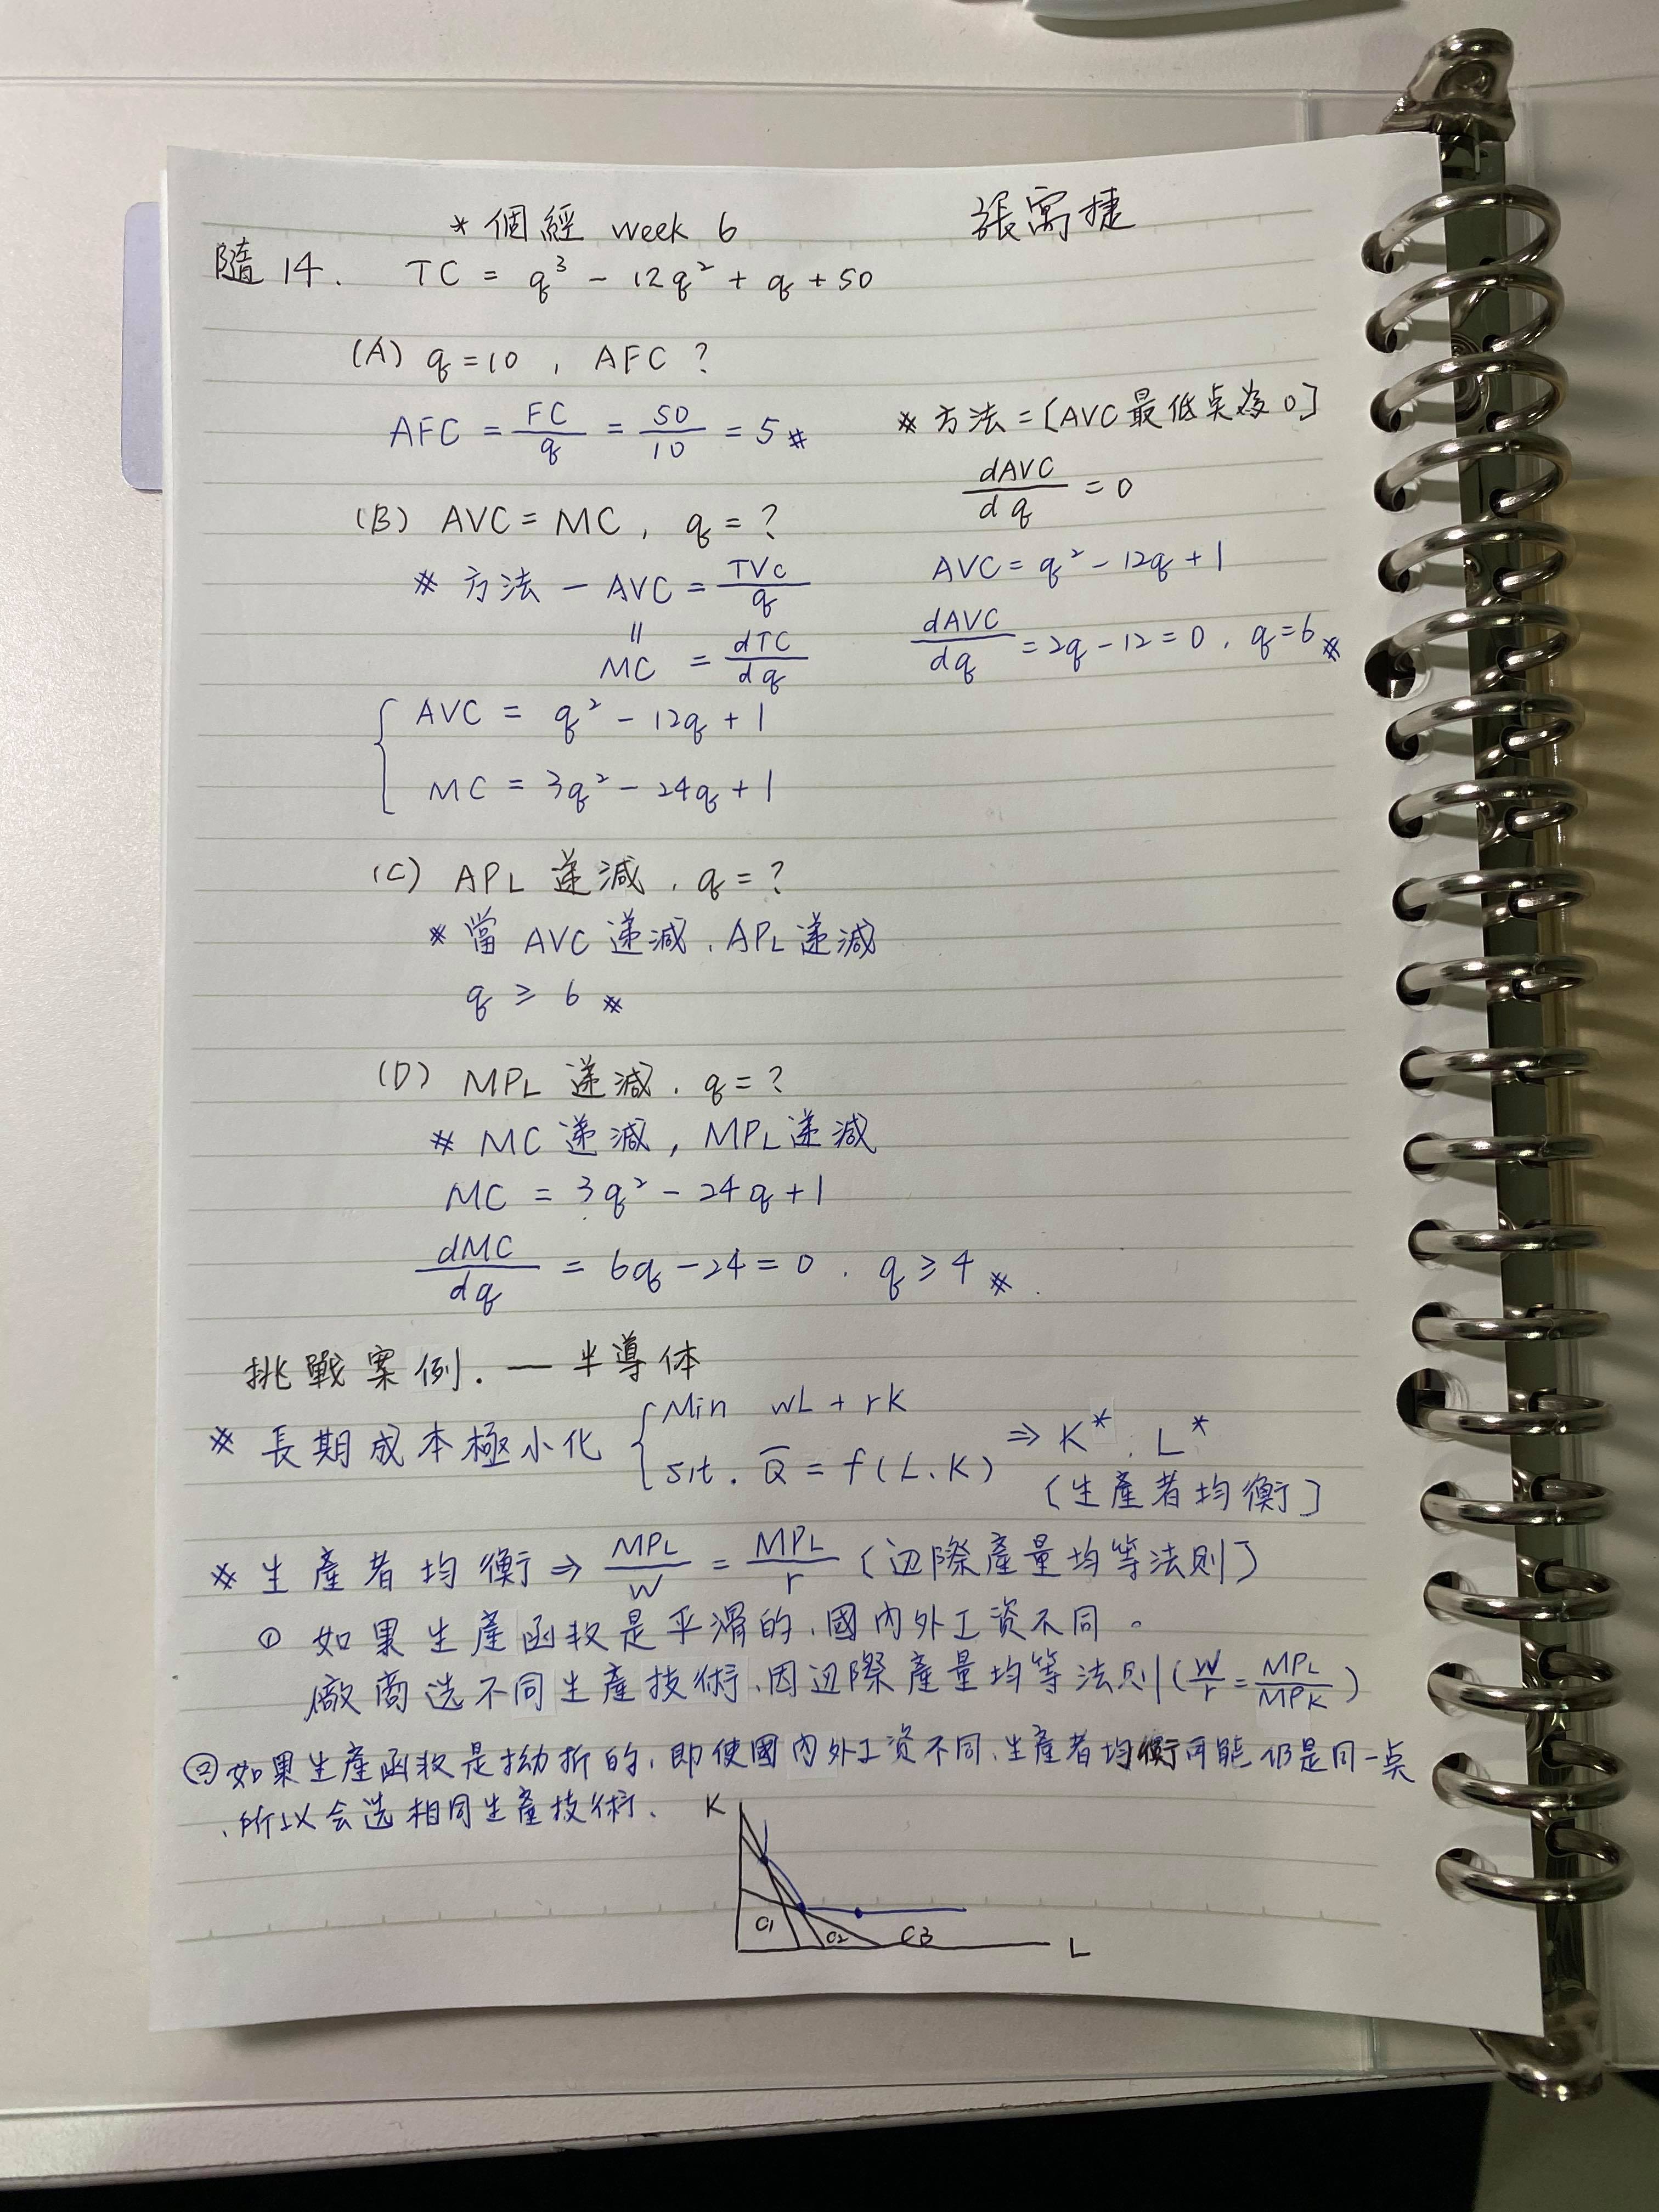 * 個經 week 6
張寓捷
隨 14. TC = q³ - 12q² + q + 50
(A) q = 10 , AFC ?
AFC = FC/q = 50/10 = 5 #
(B) AVC = MC , q = ?
* 方法 - AVC = TVC/q
=
MC = dTC/dq
{ AVC = q² - 12q + 1
MC = 3q² - 24q + 1
* 方法 = [AVC 最低点為 0]
dAVC/dq = 0
AVC = q² - 12q + 1
dAVC/dq = 2q - 12 = 0 , q = 6 #
(C) APL 遞減 , q = ?
* 當 AVC 递減 , APL 递減
q ≥ 6 #
(D) MPL 遞減 , q = ?
* MC 递減 , MPL 递減
MC = 3q² - 24q + 1
dMC/dq = 6q - 24 = 0 . q ≥ 4 #
挑戰案例 . — 半導体
* 長期成本極小化 { Min wL + rK
s.t. Q̅ = f(L、K) ⇒ K* . L*
〔生產者均衡〕
* 生產者均衡 ⇒ MPL/W = MPL/r (边際產量均等法則)
① 如果生產函数是平滑的、國內外工資不同。
廠商选不同生產技術、因边際產量均等法則 (W/r = MPL/MPK)
② 如果生產函数是拗折的、即使國內外工資不同、生產者均衡可能仍是同一点
、所以会选相同生產技術、
K
C1 C2 C3
L